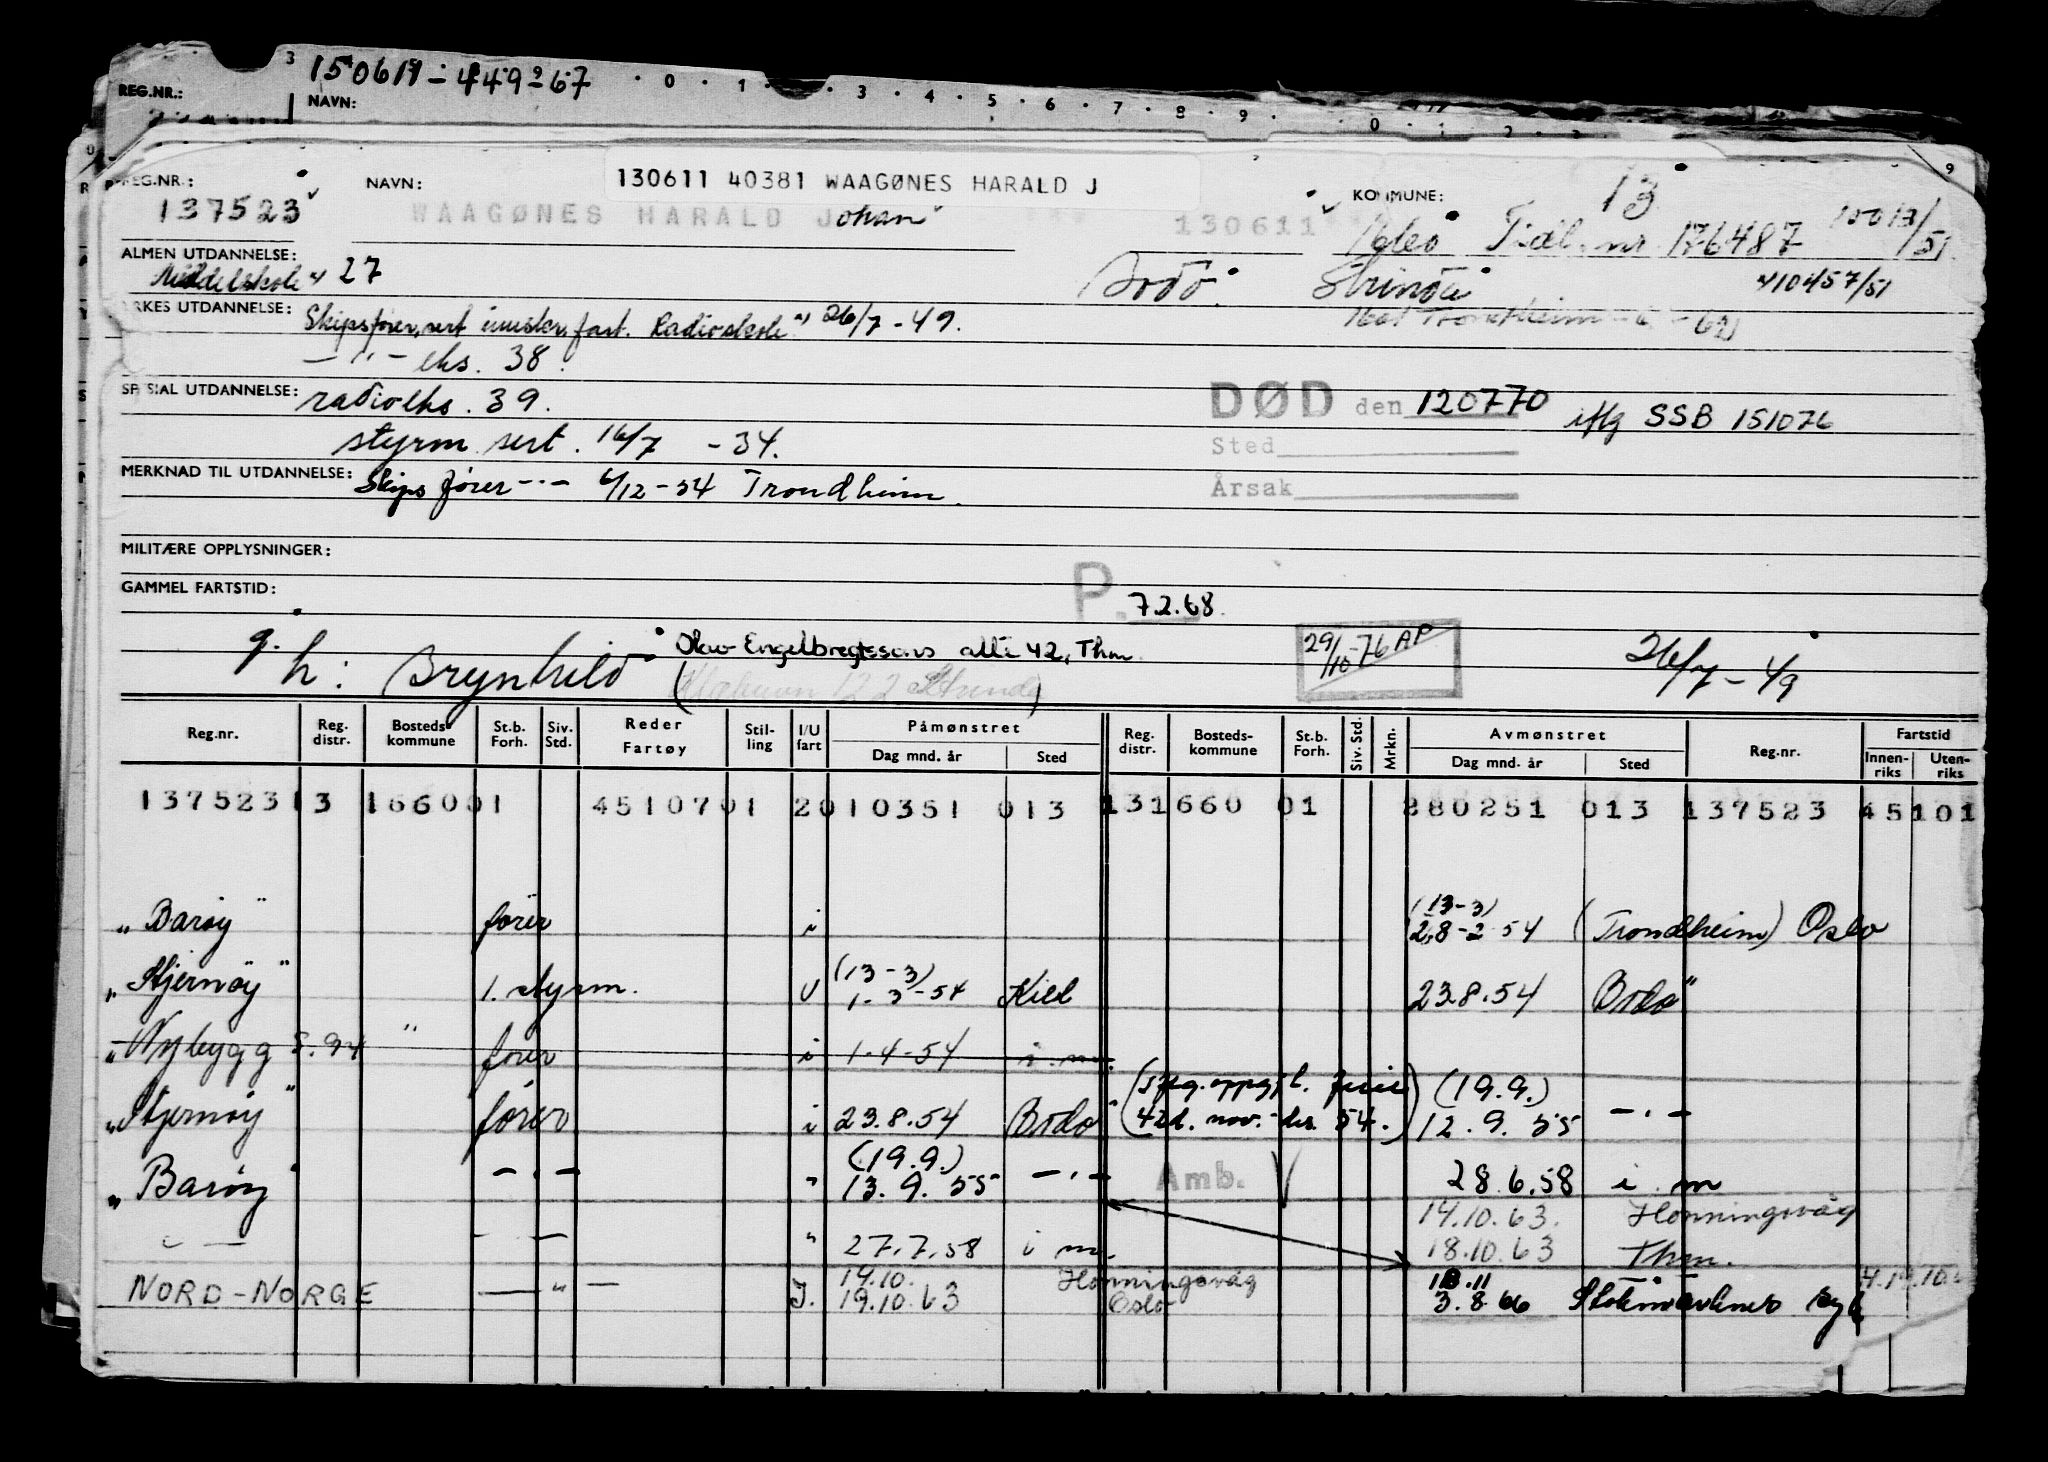 3 150611-449 67 0 1 3 4 5 6 7 8 9 0 1 2
REG.NR.: NAVN:
REG.NR.: NAVN: 130611 40381 WAAGØNES HARALD J KOMMUNE: 13 9
137523 WAAGØNES HARALD Johan 130611 Tidl. nr. 176487
ALMEN UTDANNELSE: Bodø Strinda
Middelskole 27
YRKES UTDANNELSE: Skipsfører, sert fart. Radioskole 26/7-49.
eks. 38
SPESIAL UTDANNELSE: radioeks. 39. DØD den 120770 iflg SSB 151076
styrm sert. 16/7 -34. Sted
MERKNAD TIL UTDANNELSE: Skipsfører -"- 6/12-34 Trondheim. Årsak
MILITÆRE OPPLYSNINGER:
GAMMEL FARTSTID: P. 7.2.68.
g. h: Brynhild Olav Engelbregtssøns alle 42, Thm 29/10-76 AP 26/7-49
Reg.nr. Reg. distr. Bosteds kommune St.b. Forh. Siv. Std. Reder Fartøy Stilling I/U fart Påmønstret Dag mnd. år Sted Reg. distr. Bosteds-kommune St.b. Forh. Siv. Std. Mrkn. Avmønstret Dag mnd. år Sted Reg.nr. Fartstid Innen-riks Uten-riks
137523 13 1660 01 451070 1 2 010351 013 131660 01 280251 013 137523 45101
"Barøy" fører i (13-3) 28-2 54 (Trondheim) Oslo
"Stjernøy" 1. styrm. U (13-3) 1-3-54 Kiel 23.8.54 Bodø
"Nybygg S.94" fører i 1-4-54 i.m.
"Stjernøy" fører i 23.8.54 Bodø (19.9.) 12.9.55 -"-
"Barøy" -"- " (19.9.) 13.9.55 -"- Amb. V 28.6.58 i.m
-"- " 27.7.58 i m. 14.10.63. Honningsvåg
18.10.63 Thm.
NORD-NORGE -"- I. 14.10. Honningsvåg
19.10.63 Oslo 3.8.66 Stokmarknes